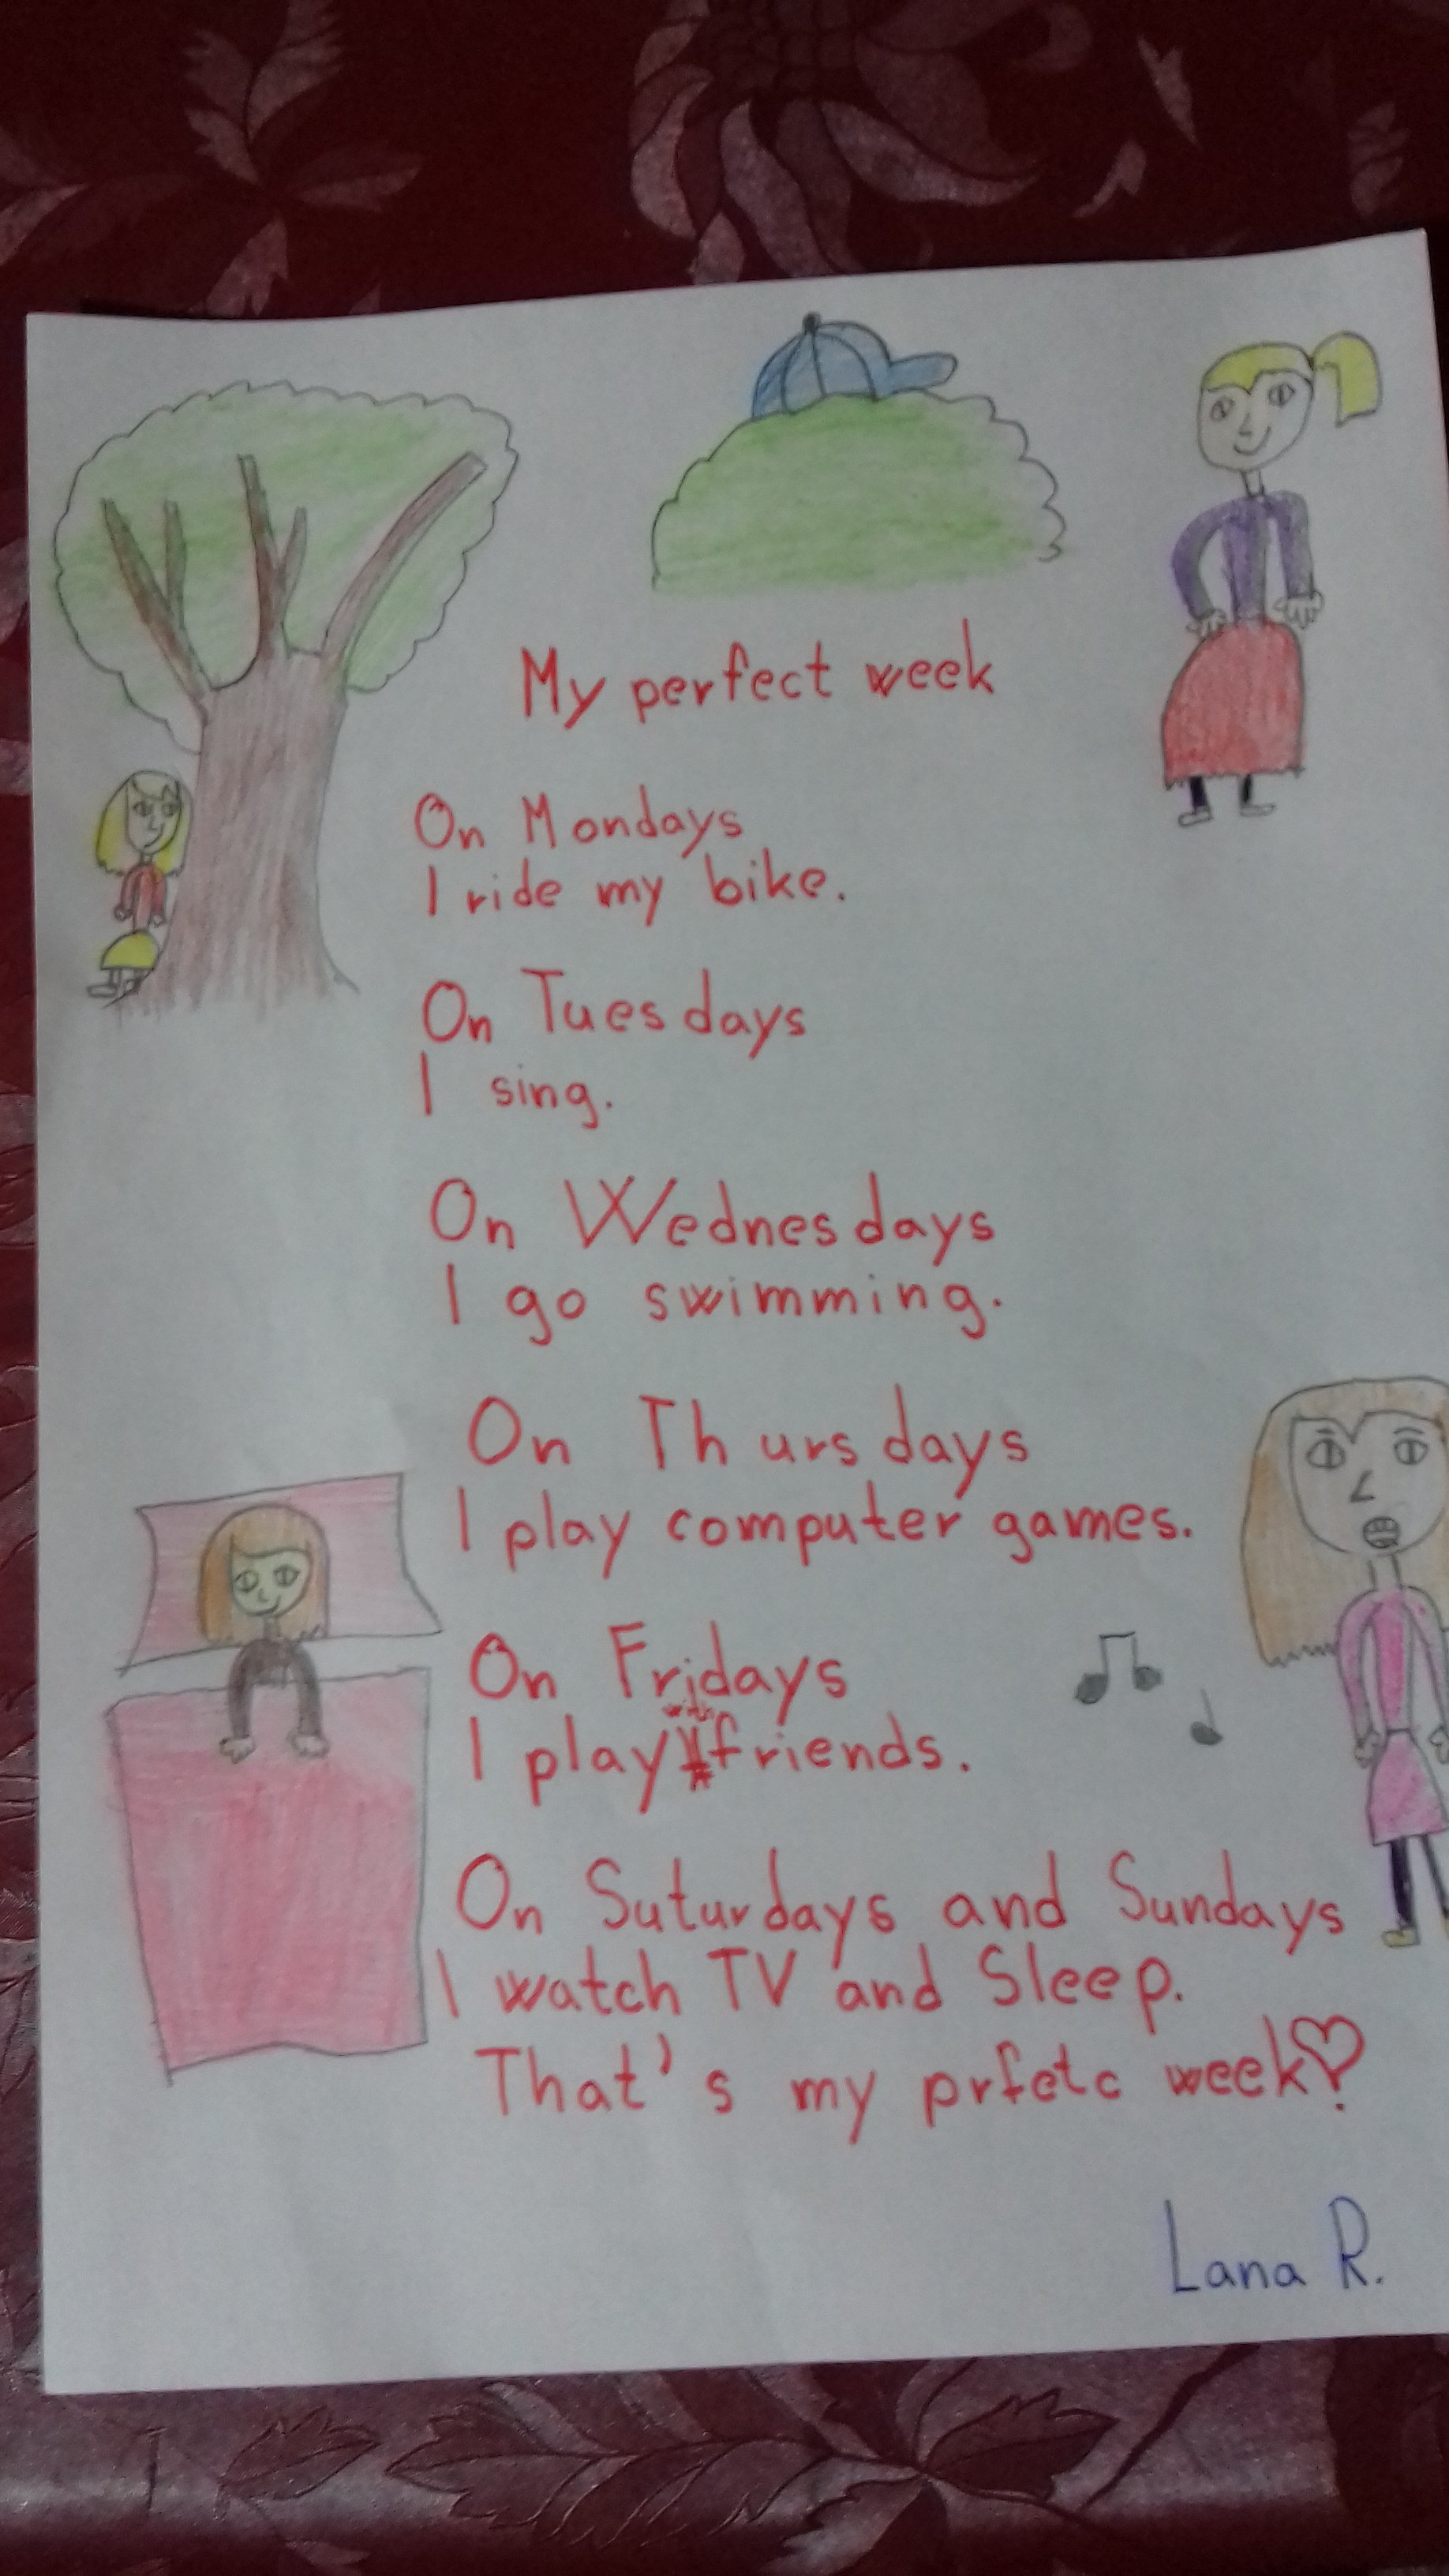 My perfect week
On Mondays
I ride my bike.
On Tuesdays
I sing.
On Wednesdays
I go swimming.
On Thursdays
I play computer games.
On Fridays
I play with friends.
On Suturdays and Sundays
I watch TV and Sleep.
That's my prfetc week♡
Lana R.